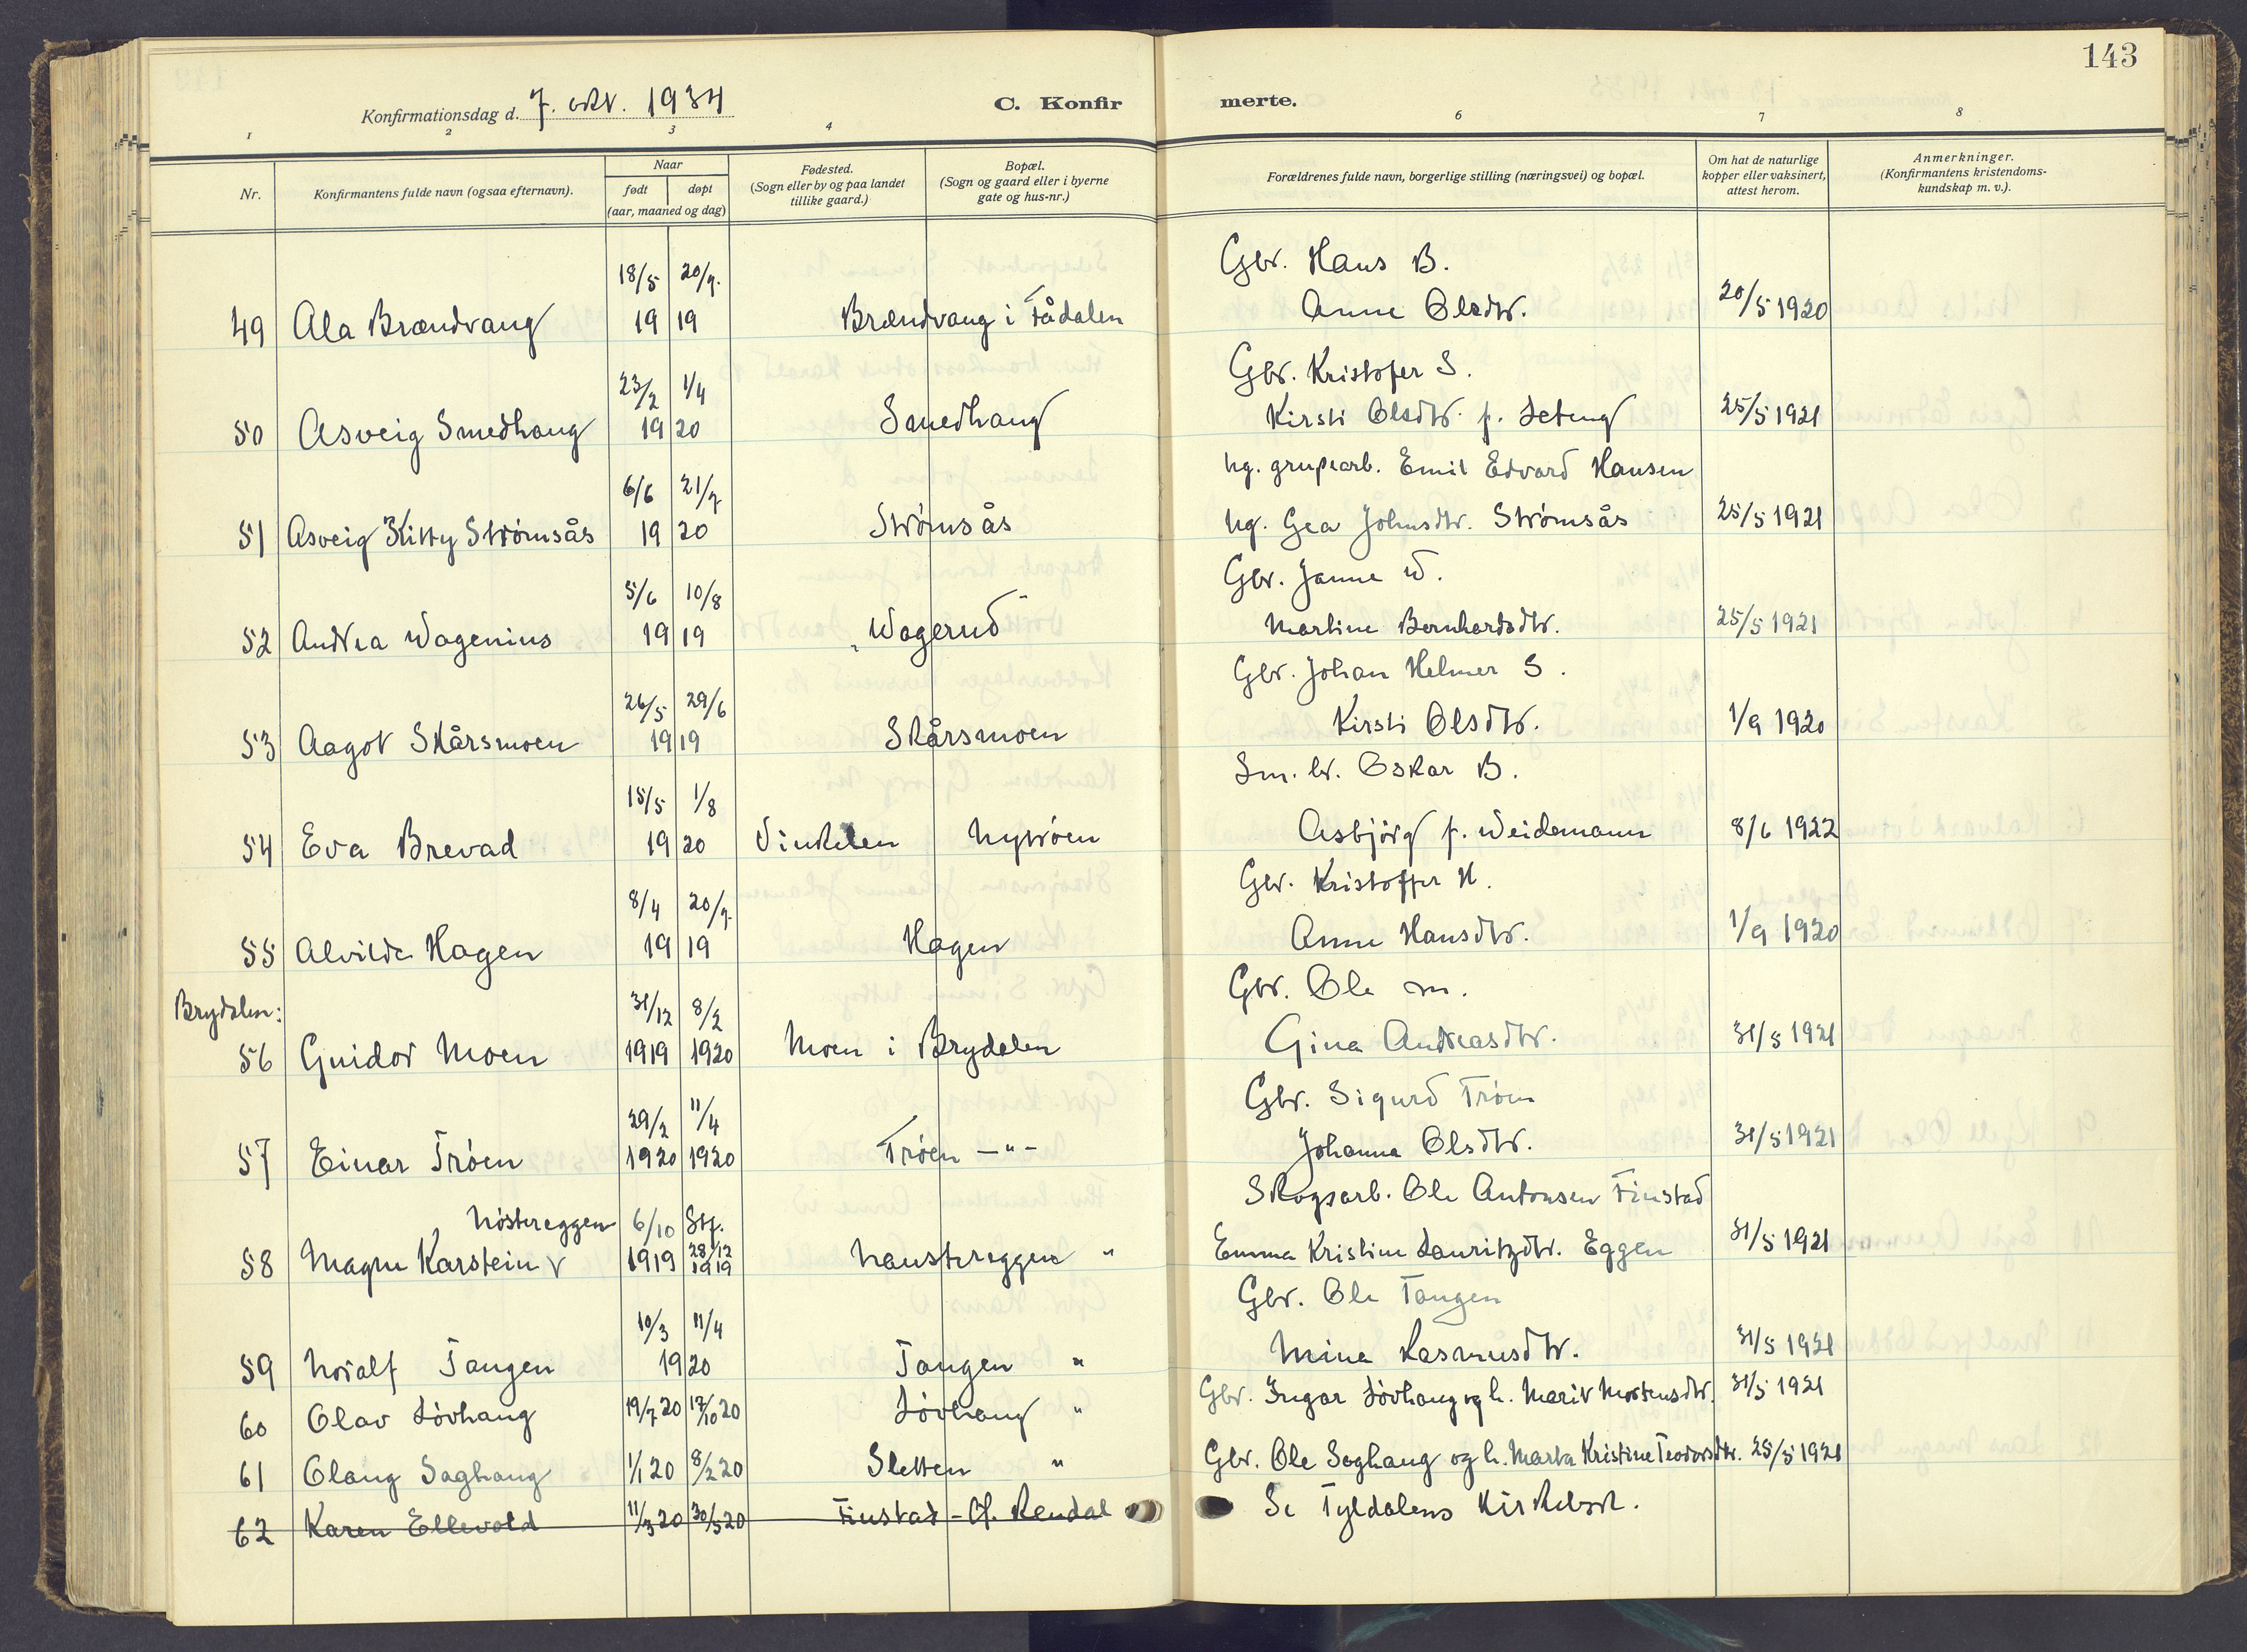 143
Konfirmationsdag d. 7. okt. 1934
C. Konfirmerte.
1 2 3 4 6 7 8
Nr.
Konfirmantens fulde navn (ogsaa efternavn).
Naar
født døpt
(aar, maaned og dag)
Fødested.
(Sogn eller by og paa landet
tillike gaard.)
Bopæl.
(Sogn og gaard eller i byerne
gate og hus-nr.)
Forældrenes fulde navn, borgerlige stilling (næringsvei) og bopæl.
Om hat de naturlige
kopper eller vaksinert,
attest herom.
Anmerkninger.
(Konfirmantens kristendoms-
kundskap m. v.).
18/5 20/7. Gbr. Hans B.
49 Ala Brændvang 19 19 Brændvang i Fådalen Anne Olsdtr. 20/5 1920
23/2 1/4 Gbr. Kristofer S.
50 Asveig Smedhaug 19 20 Smedhaug Kirsti Olsdtr. f. Seteng 25/5 1921
6/6 21/7 ug. grupearb. Emil Edvard Hansen
51 Asveig Kitty Strømsås 19 20 Strømsås ug. Gea Johnsdtr. Strømsås 25/5 1921
5/6 10/8 Gbr. Janne W.
52 Andrea Wagenius 19 19 "Wagerud" Martine Bernhardsdtr. 25/5 1921
26/5 29/6 Gbr. Johan Helmer S.
53 Aagot Skårsmoen 19 19 Skårsmoen Kirsti Olsdtr. 1/9 1920
15/5 1/8 Sm. br. Oskar B.
54 Eva Brevad 19 20 Vinkelen Nytrøen Asbjørg f. Weidemann 8/6 1922
8/4 20/7. Gbr. Kristoffer H.
55 Alvilda Hagen 19 19 Hagen Anne Hansdtr. 1/9 1920
Brydalen: 31/12 8/2 Gbr. Ole M.
56 Guidor Moen 1919 1920 Moen i Brydalen Gina Andreasdtr. 31/5 1921
29/2 11/4 Gbr. Sigurd Trøen
57 Einar Trøen 1920 1920 Trøen -"- Johanna Olsdtr. 31/5 1921
Nøstereggen 6/10 Stf. Skogsarb. Ole Antonsen Finstad
58 Magne Karstein v 1919 28/12 1919 Naustereggen " Emma Kristine Lauritzdtr. Eggen 31/5 1921
10/3 11/4 Gbr. Ole Tangen
59 Noralf Tangen 19 20 Tangen " Mina Rasmusdtr. 31/5 1921
60 Olav Løvhaug 19/7 20 17/10 20 Løvhaug " Gbr. Ingar Løvhaug og h. Marit Mortensdtr. 31/5 1921
61 Olaug Saghaug 1/1 20 8/2 20 Sletten " Gbr. Ole Saghaug og h. Marta Kristine Teodorsdtr. 25/5 1921
62 Karen Ellevold 11/3 20 30/5 20 Finstad - Ø. Rendal Se Tyldalens Kirkebok.